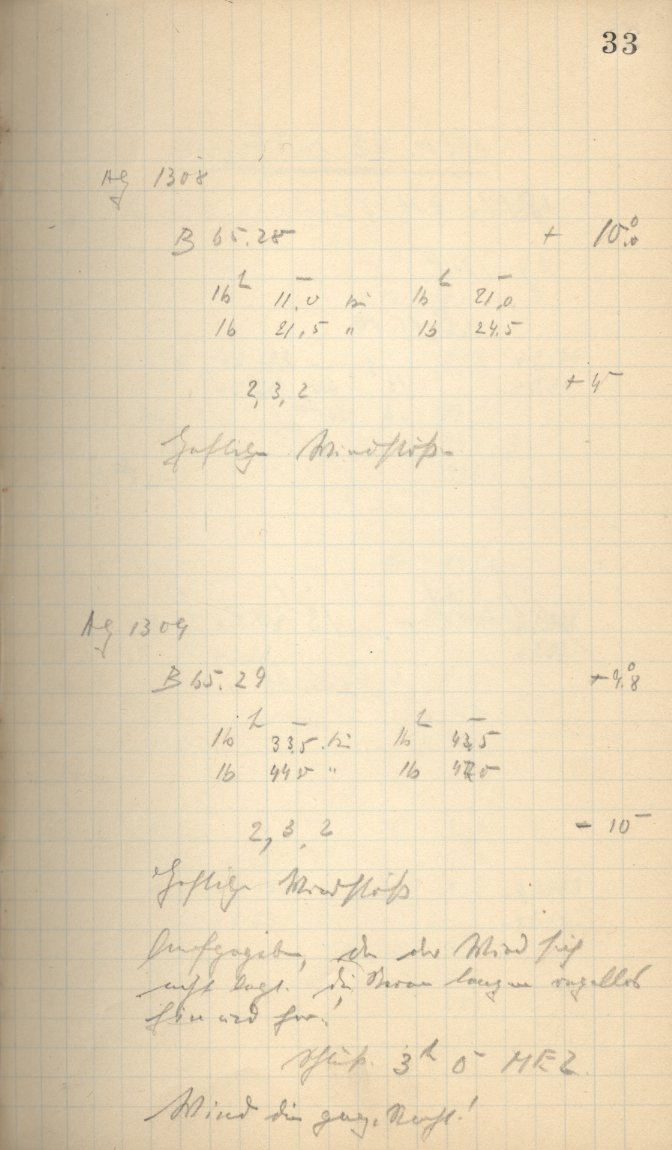 33
AG 1308
B 65.25 + 10.°0
16h 11,0 bis 16h 21,0
16 21,5 " 16 24.5
2, 3, 2 + 5
Heftige Windstöße
AG 1309
B 65.29 + 9.°8
16h 33,5 bis 16h 43,5
16 44 0 " 16 47 0
2, 3, 2 - 10
Heftige Windstöße
Aufgegeben, da der Wind sich
nicht legt. die Sterne tanzen regellos
hin und her!
Schluß. 3h 0 MEZ.
Wind die ganze Nacht!